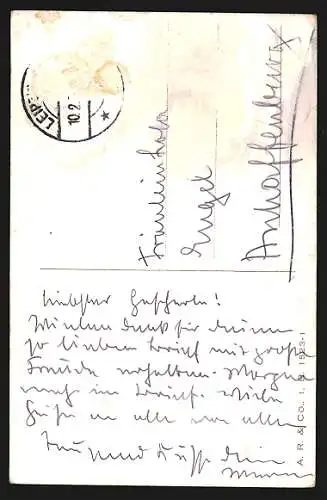 LEIPZIG
10.2.
*
Fräulein
Engel
Aschaffenburg
Liebster
Vielen Dank für deinen
so lieben Brief mit großer
Freude erhalten. Morgen
mehr im Brief. Viele
Grüße an alle von allen
Tausend Küsse Dein
A. R. & CO. I. B. 1523-1